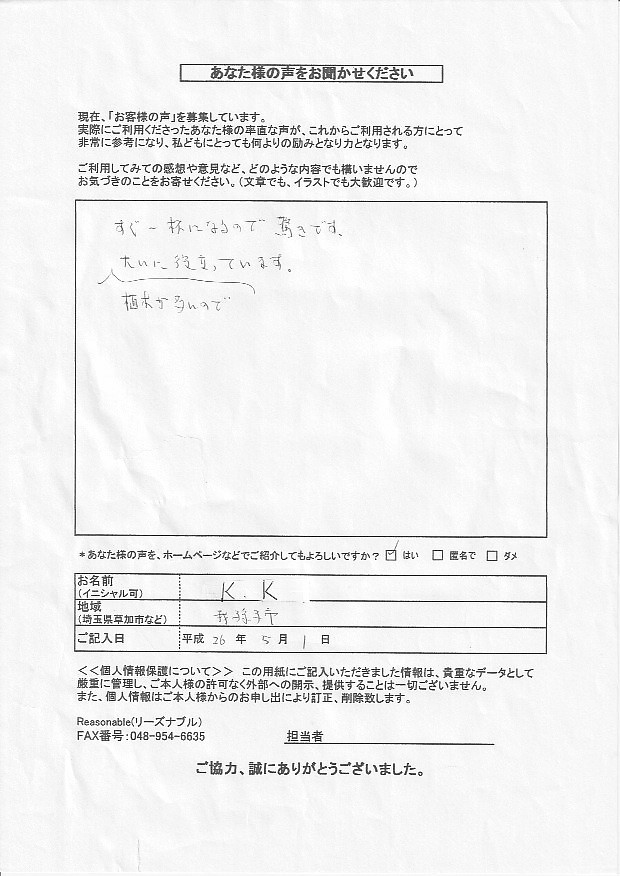 あなた様の声をお聞かせください
現在、「お客様の声」を募集しています。
実際にご利用くださったあなた様の率直な声が、これからご利用される方にとって
非常に参考になり、私どもにとっても何よりの励みとなり力となります。
ご利用してみての感想や意見など、どのような内容でも構いませんので
お気づきのことをお寄せください。(文章でも、イラストでも大歓迎です。)
すぐ一杯になるので驚きです、
大いに役立っています。
植木が多いので
*あなた様の声を、ホームページなどでご紹介してもよろしいですか? ☑ はい □ 匿名で □ ダメ
お名前
(イニシャル可)
K.K
地域
(埼玉県草加市など)
我孫子市
ご記入日 平成 26 年 5 月 1 日
<<個人情報保護について>> この用紙にご記入いただきました情報は、貴重なデータとして
厳重に管理し、ご本人様の許可なく外部への開示、提供することは一切ございません。
また、個人情報はご本人様からのお申し出により訂正、削除致します。
Reasonable(リーズナブル)
FAX番号:048-954-6635 担当者
ご協力、誠にありがとうございました。